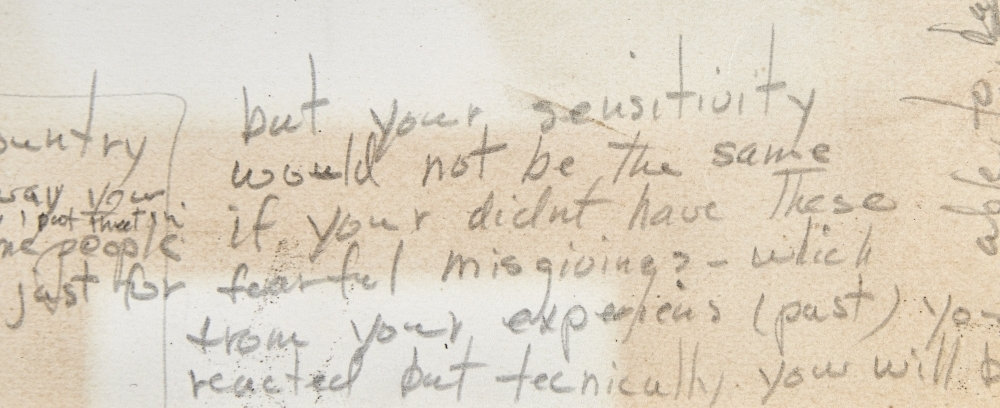 but your sensitivity
would not be the same
if your didnt have These
fearful misgivings - which
from your experiens (past) yo
reacted but tecnically you will b
ountry
way your
I put that in
me people
just for
able to